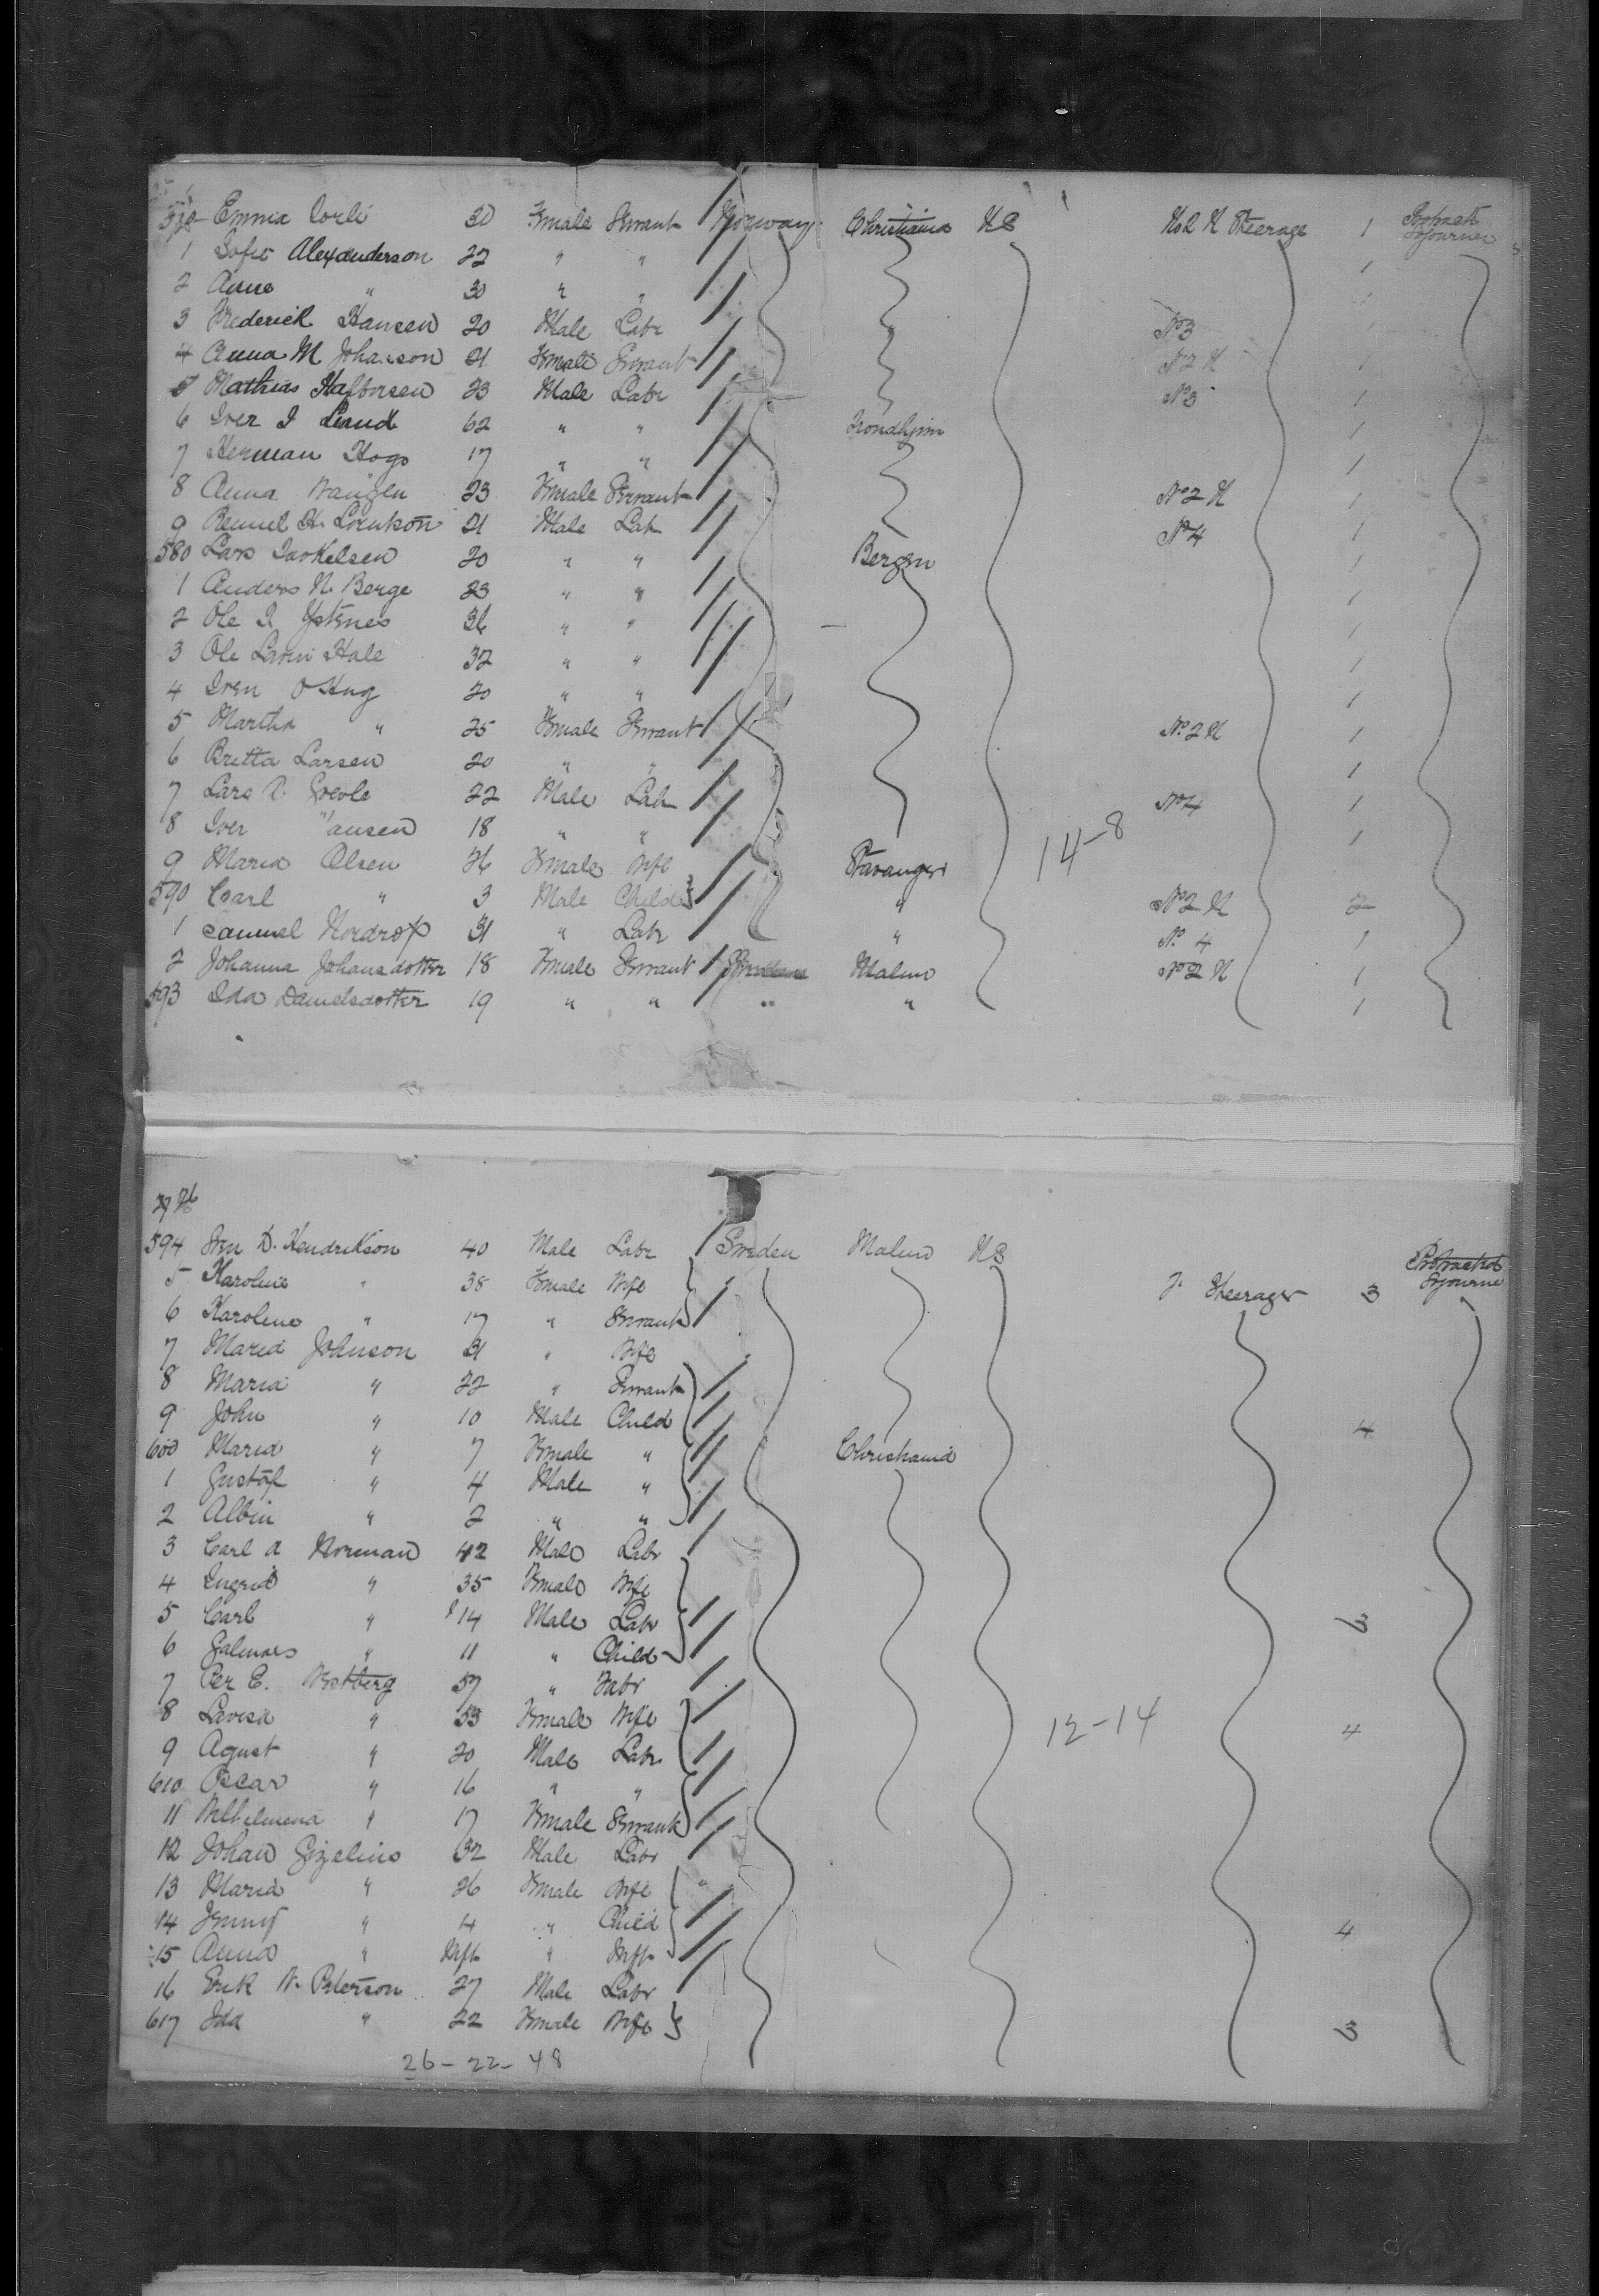 570 Emma 30 Female Servant Norway Christiania US No 2 H Steerage 1 Protract Sojourner
1 Sofie Alexanderson 22 " " 1
2 Anna " 30 " "
3 Frederick Hansen 20 Male Labr No 3
4 Anna M Johanson 21 Female Servant No 2 H 1
5 Mathias Halforsen 23 Male Labr No 3 1
6 Iver I 62 " " Trondhjem 1
7 Herman Hogo 17 " " 1
8 Anna 23 Female Servant No 2 H 1
9 21 Male Labr No 4 1
580 Lars 20 " " Bergen 1
1 Anders N. Berge 23 " " 1
2 Ole I. 36 " " 1
3 Ole Hole 32 " " 1
4 Iven O Hug 20 " " 1
5 Martha " 25 Female Servant No 2 H 1
6 Britta Larsen 20 " " 1
7 Lars 22 Male Labr No 4 1
8 Iver Hansen 18 " " 1
9 Maria Olsen 26 Female Wife Stavanger
14-8
590 Carl " 3 Male Child " No 2 H 2
1 Samuel 31 " Labr " No 4 1
2 Johanna Johansdotter 18 Female Servant Malmo No 2 H 1
593 Ida Danielsdotter 19 " " " " 1
594 Sven D. Hendrikson 40 Male Labr Sweden Malmo US
5 Karolina " 38 Female Wife Steerage 3 Protracted Sojourne
6 Karolina " 17 " Servant
7 Maria Johnson 31 " Wife
8 Maria " 22 " Servant
9 John " 10 Male Child 4
600 Maria " 7 Female " Christiania
1 Gustaf " 4 Male "
2 Albin " 2 " "
3 Carl A Norman 42 Male Labr
4 Ingrid " 35 Female Wife
5 Carl " 14 Male Labr 3
6 " 11 " Child
7 Per E. Westberg 57 " Labr
8 Lovisa " 53 Female Wife 4
12-14
9 Agust " 20 Male Labr
610 Oscar " 16 " "
11 Wilhelmena " 17 Female Servant
12 Johan Gizelius 32 Male Labr
13 Maria " 26 Female Wife
14 Jenny " 4 " Child 4
15 Anna " Inft " Inft
16 Erik W. Peterson 27 Male Labr
617 Ida " 22 Female Wife 3
26-22-48